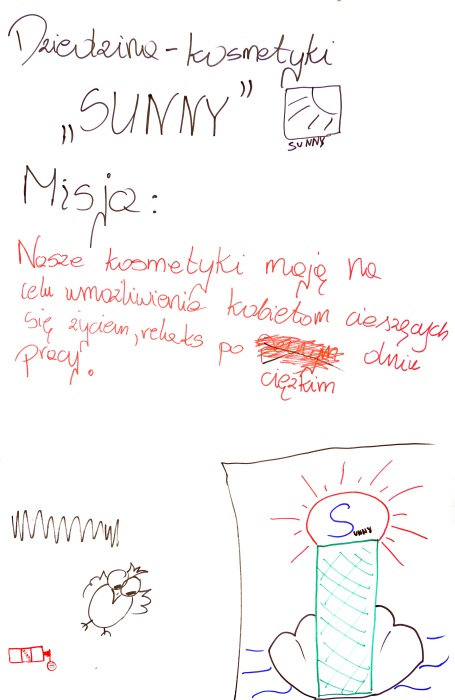 Dziedzina - kosmetyki
„SUNNY”
SUNNY
Misja:
Nasze kosmetyki mają na
celu umożliwienie kobietom cieszących
się życiem, relaks po dniu
ciężkim
pracy.
Sunny